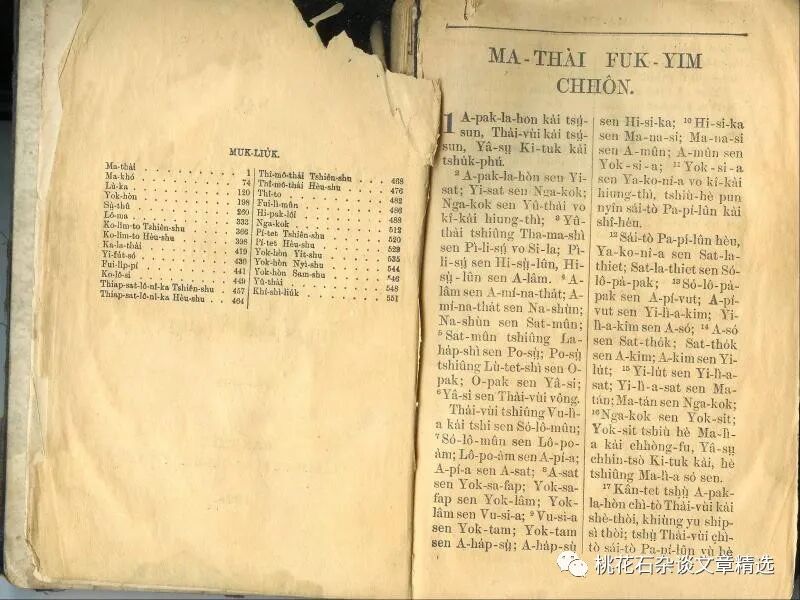 MUK-LIU̍K.
Ma-thài . . . . . . . . 1
Ma-khó . . . . . . . . 74
Lù-ka . . . . . . . . 120
Yok-hòn . . . . . . . . 198
Sṳ́-thû . . . . . . . . 260
Lô-ma . . . . . . . . 333
Ko-lîm-to Tshiên-shu . . . . 366
Ko-lîm-to Hèu-shu . . . . 398
Ka-la-thài . . . . . . . . 419
Yi-fut-só . . . . . . . . 430
Fui-li̍p-pí . . . . . . . . 441
Ko-lô-si . . . . . . . . 449
Thiap-sat-lô-nî-ka Tshiên-shu . . 457
Thiap-sat-lô-nî-ka Hèu-shu . . 464
Thî-mô-thài Tshiên-shu . . . 468
Thî-mô-thài Hèu-shu . . . 476
Thî-to . . . . . . . . 482
Fui-lì-mûn . . . . . . . . 486
Hi-pak-lói . . . . . . . . 488
Nga-kok . . . . . . . . 512
Pí-tet Tshiên-shu . . . . 520
Pí-tet Hèu-shu . . . . 529
Yok-hòn Yit-shu . . . . 535
Yok-hòn Nyi-shu . . . . 544
Yok-hòn Sam-shu . . . . 546
Yû-thài . . . . . . . . 548
Khí-shì-liu̍k . . . . . . 551
MA-THÀI FUK-YIM
CHHÔN.
1 A-pak-la-hòn kài tsṳ́-
sun, Thài-vùi kài tsṳ́-
sun, Yâ-sṳ Ki-tuk kài
tshu̍k-phú.
² A-pak-la-hòn sen Yi-
sat; Yi-sat sen Nga-kok;
Nga-kok sen Yû-thài vo
kî-kài hiung-thì; ³ Yû-
thài tshiûng Tha-ma-shì
sen Pì-li-sṳ́ vo Si-la; Pì-
li-sṳ́ sen Hi-sṳ̀-lûn, Hi-
sṳ̀-lûn sen A-lâm. ⁴ A-
lâm sen A-mí-na-tha̍t; A-
mí-na-tha̍t sen Na-shùn;
Na-shùn sen Sat-mûn;
⁵ Sat-mûn tshiûng La-
ha̍p-shì sen Po-sṳ̀; Po-sṳ̀
tshiûng Lù-tet-shì sen O-
pak; O-pak sen Yâ-si;
⁶ Yâ-si sen Thài-vùi vông.
Thài-vùi tshiûng Vu-lì-
a kài tshi sen Só-lô-mûn;
⁷ Só-lô-mûn sen Lô-po-
àm; Lô-po-àm sen A-pí-a;
A-pí-a sen A-sat; ⁸ A-sat
sen Yok-sa-fap; Yok-sa-
fap sen Yok-lâm; Yok-
lâm sen Vu-si-a; ⁹ Vu-si-a
sen Yok-tam; Yok-tam
sen A-ha̍p-sṳ̀; A-ha̍p-sṳ̀
sen Hi-si-ka; ¹⁰ Hi-si-ka
sen Ma-na-si; Ma-na-si
sen A-mûn; A-mûn sen
Yok-si-a; ¹¹ Yok-si-a
sen Ya-ko-nî-a vo kí-kài
hiung-thì, tshiù-hè pun
nyîn sái-tò Pa-pí-lûn kài
shî-hèu.
¹² Sái-tò Pa-pí-lûn hèu,
Ya-ko-nî-a sen Sat-la-
thiet; Sat-la-thiet sen Só-
lô-pà-pak; ¹³ Só-lô-pà-
pak sen A-pí-vut; A-pí-
vut sen Yi-lì-a-kim; Yi-
lì-a-kim sen A-só; ¹⁴ A-só
sen Sat-tho̍k; Sat-tho̍k
sen A-kim; A-kim sen Yi-
lu̍t; ¹⁵ Yi-lu̍t sen Yi-lì-a-
sat; Yi-lì-a-sat sen Ma-
tán; Ma-tán sen Nga-kok;
¹⁶ Nga-kok sen Yok-sit;
Yok-sit tshiù hè Ma-lì-
a kài chòng-fu, Yâ-sṳ
chhin-tsò Ki-tuk kài, hè
tshiûng Ma-lì-a só sen.
¹⁷ Kân-tet tshṳ̀ A-pak-
la-hòn chì-tò Thài-vùi kài
shè-thòi, khiùng yu ship-
sì thòi; tshṳ̀ Thài-vùi chì-
tò sái-tò Pa-pí-lûn vù hè
桃花石杂谈文章精选